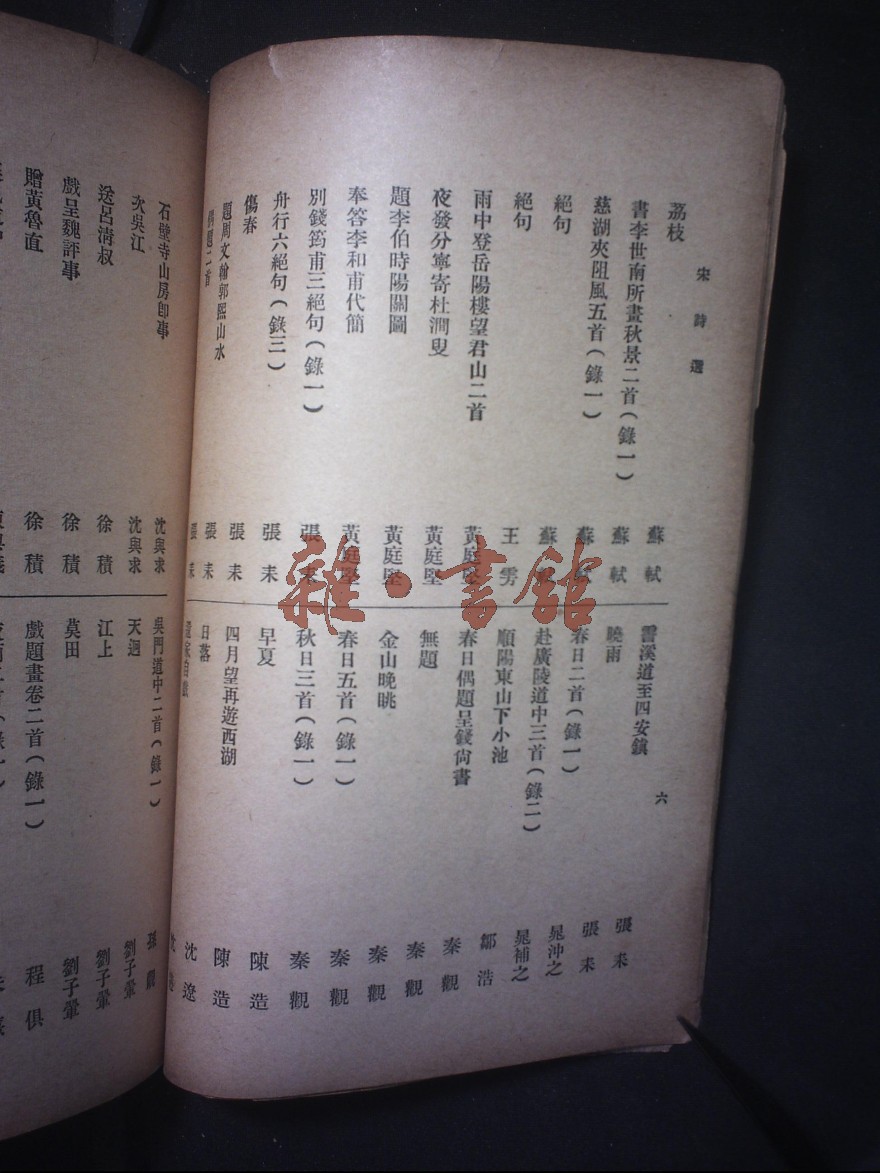 宋詩選
荔枝 蘇軾
書李世南所畫秋景二首(錄一) 蘇軾
慈湖夾阻風五首(錄一) 蘇軾
絕句 蘇軾
絕句 王雱
雨中登岳陽樓望君山二首 黃庭堅
夜發分寧寄杜澗叟 黃庭堅
題李伯時陽關圖 黃庭堅
奉答李和甫代簡 黃庭堅
別錢筠甫三絕句(錄一) 張耒
舟行六絕句(錄三) 張耒
傷春 張耒
題周文翰郭熙山水 張耒
偶題二首 張耒
六
霅溪道至四安鎮 張耒
曉雨 張耒
春日二首(錄一) 晁沖之
赴廣陵道中三首(錄二) 晁補之
順陽東山下小池 鄒浩
春日偶題呈錢尙書 秦觀
無題 秦觀
金山晚眺 秦觀
春日五首(錄一) 秦觀
秋日三首(錄一) 秦觀
早夏 陳造
四月望再遊西湖 陳造
日落 沈遼
石壁寺山房卽事 沈與求
次吳江 沈與求
送呂淸叔 徐積
戲呈魏評事 徐積
贈黃魯直 徐積
吳門道中二首(錄一) 孫覿
天迴 劉子翬
江上 劉子翬
莫田 劉子翬
戲題畫卷二首(錄一) 程俱
雜·書館